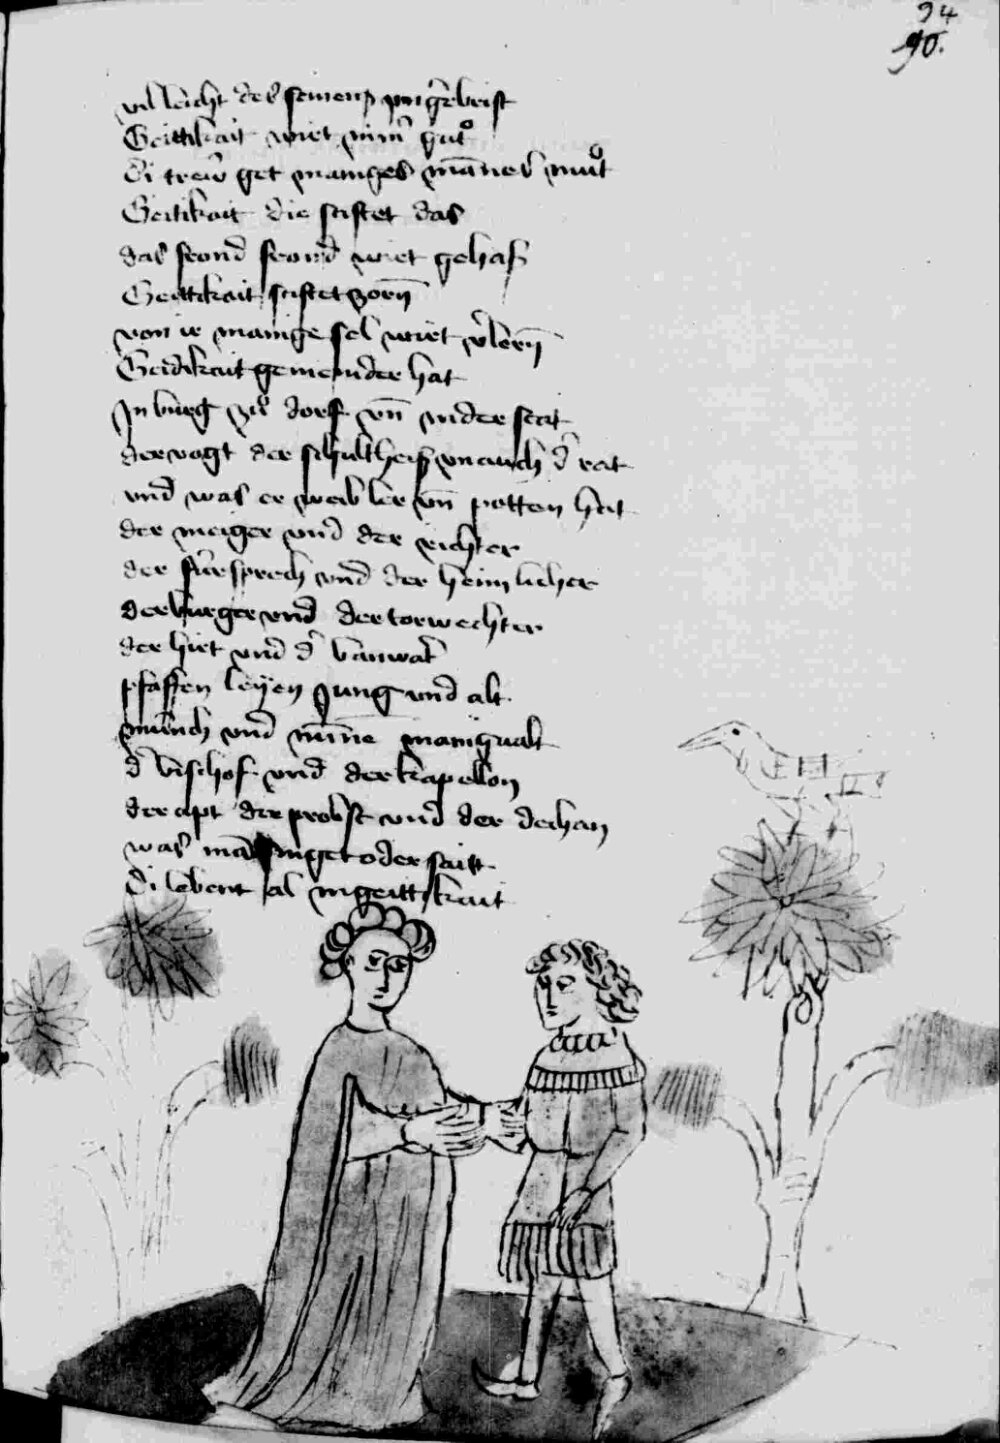 94
90.
vil leicht des seinenß im gebrist
Geittikait wirt nim̄ gůt
Di trew get maniges mānes můt
Geitikait die stiftet das
das freond freond wirt gehaß
Geittikait stiftet zorn̄
von ir manige sel wirt vˀlorn̄
Geidikait gemeinder hat
In burg zů dorf vn̄ in der stat
der vogt der schultheiß vn auch dˀ rat
vnd was er weibler vn̄ potten hat
der meiger vnd der richter
der fürsprech vnd der heimlicher
der burger vnd der torwechter
der hirt vnd dˀ banwart
pfaffen leÿen Jung vnd alt
münch vnd nūne manigualt
dˀ bischof vnd der kapellon
der apt der probst vnd der dechan
was mā singet oder sait
Di lebent al in geittikait